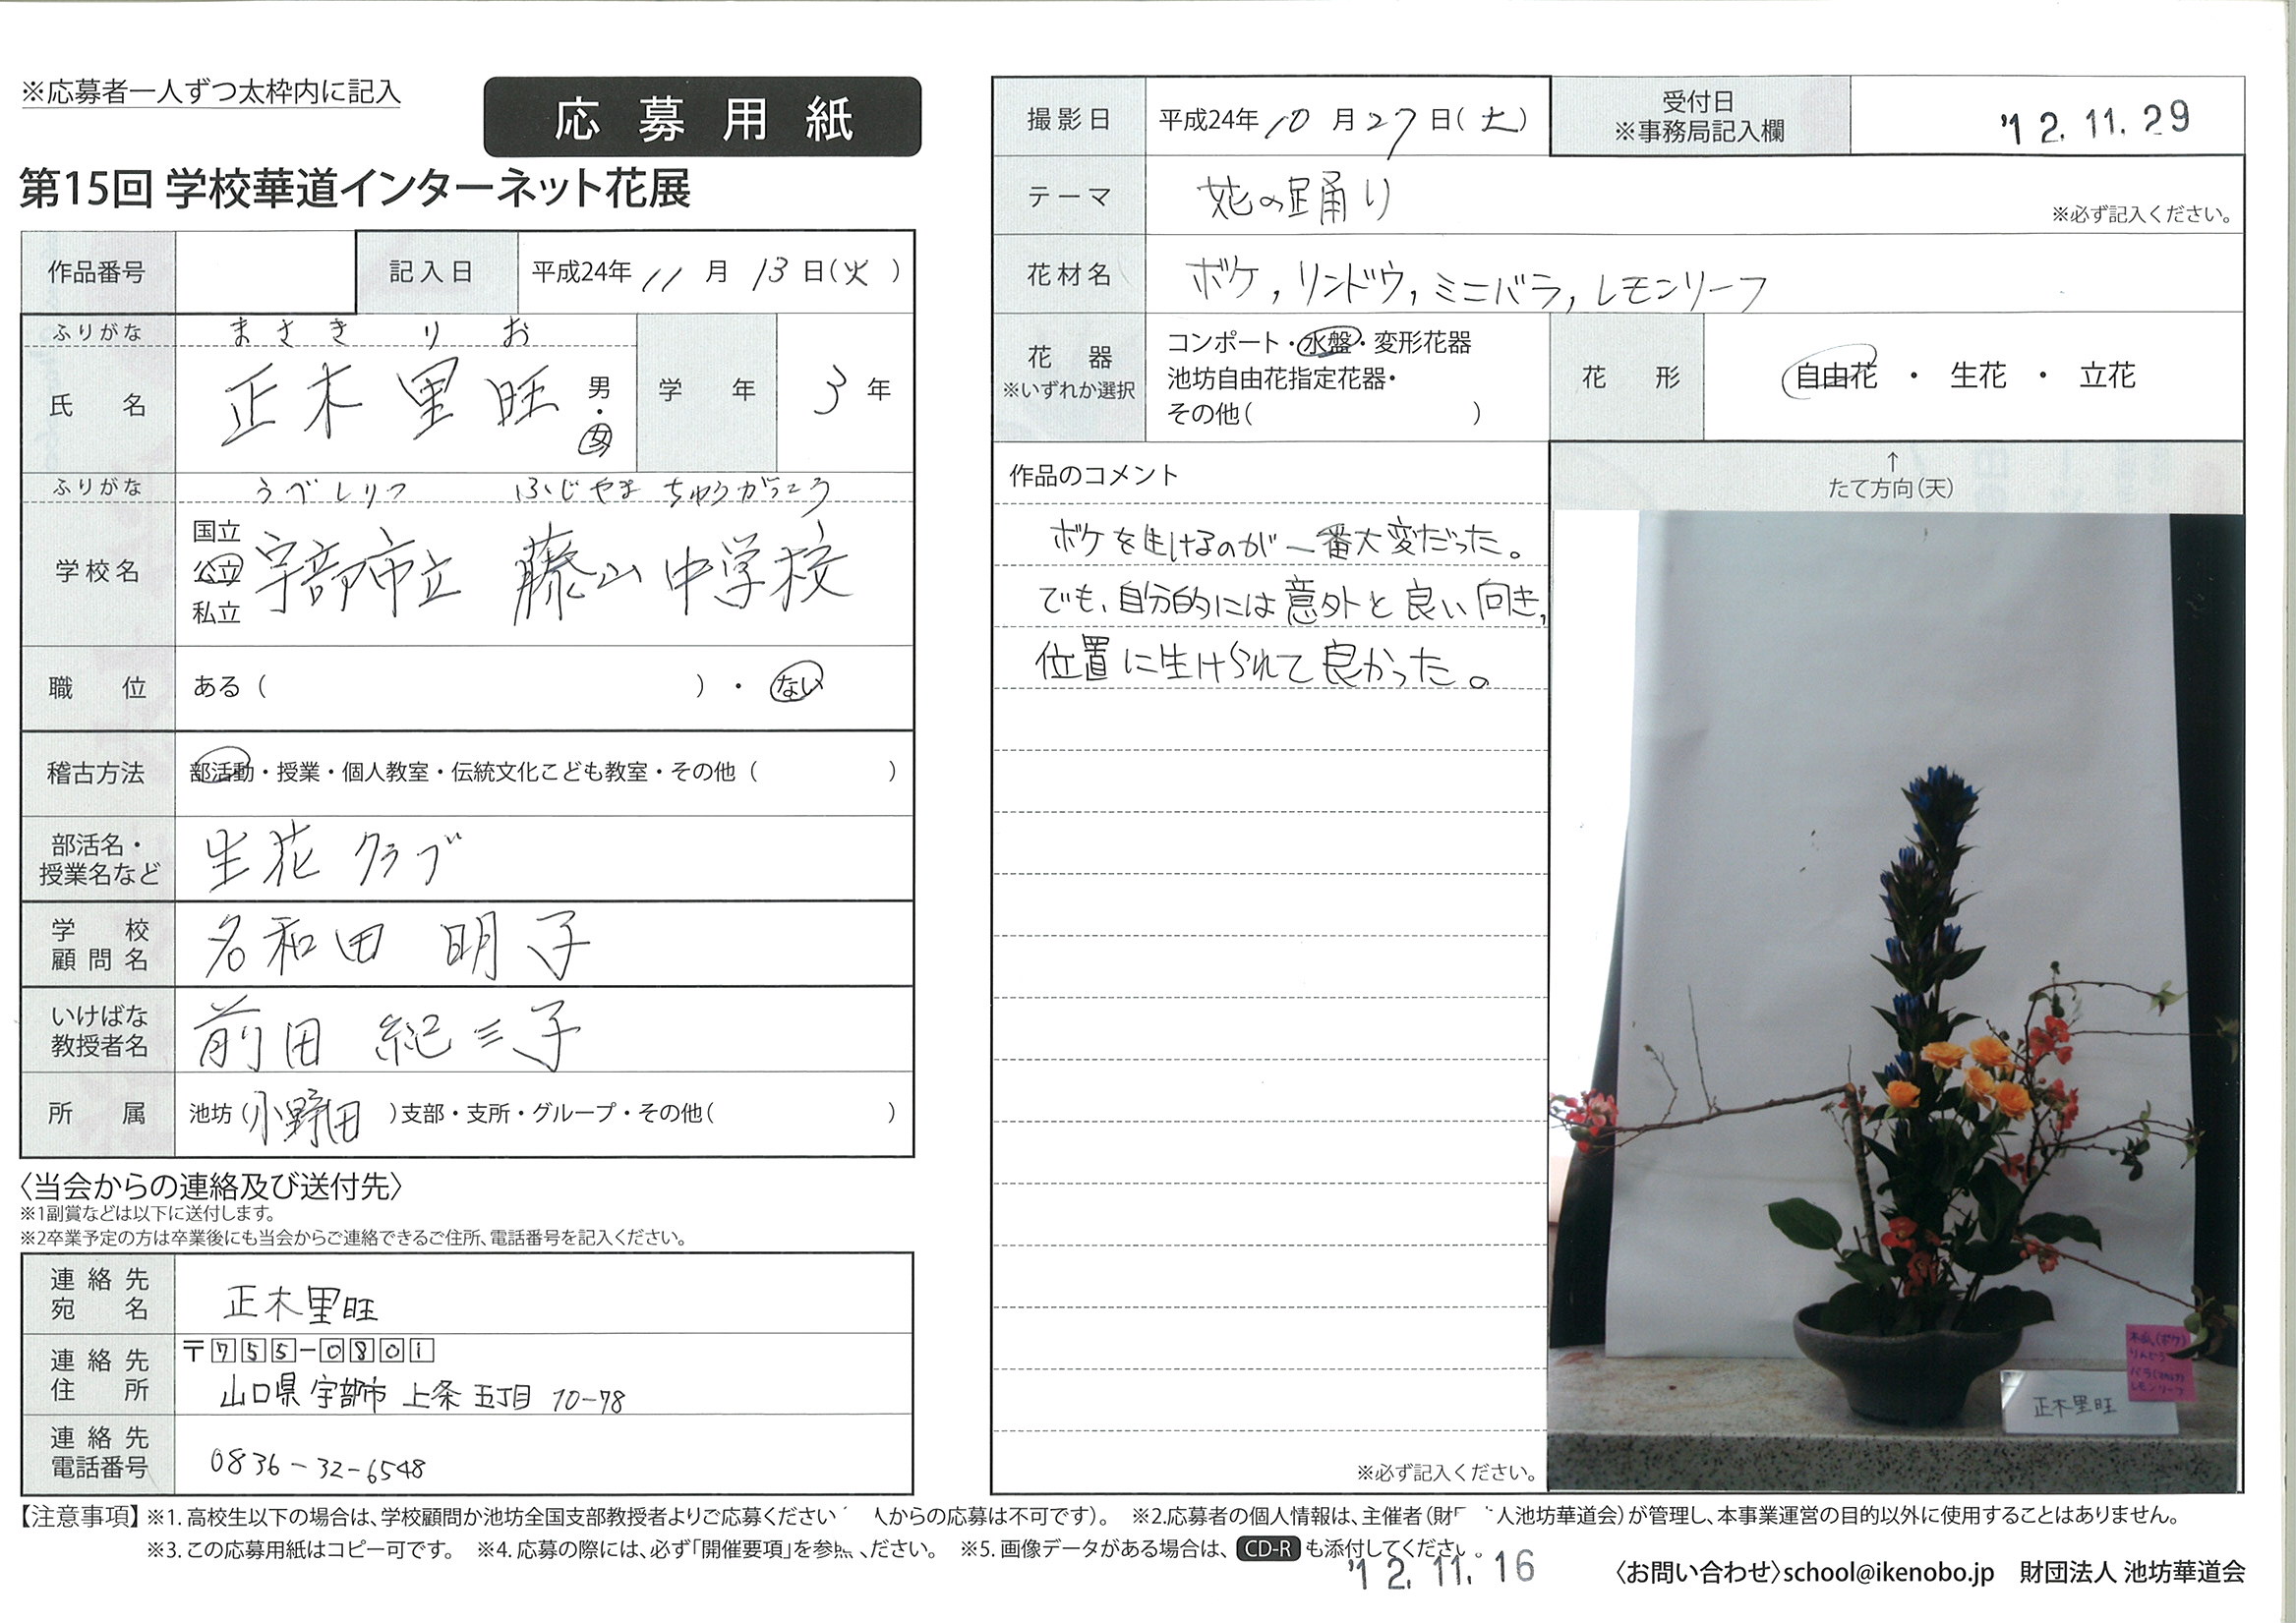 ※応募者一人ずつ太枠内に記入
応募用紙
第15回 学校華道インターネット花展
作品番号
記入日 平成24年 11 月 13 日(火)
ふりがな まさき りお
氏名 正木 里旺 男・女
学年 3年
ふりがな うべしりつ ふじやま ちゅうがっこう
学校名 国立 公立 私立 宇部市立 藤山中学校
職位 ある( )・ない
稽古方法 部活動・授業・個人教室・伝統文化こども教室・その他( )
部活名・授業名など 生花クラブ
学校顧問名 名和田 明子
いけばな教授者名 前田 紀三子
所属 池坊(小野田)支部・支所・グループ・その他( )
〈当会からの連絡及び送付先〉
※1副賞などは以下に送付します。
※2卒業予定の方は卒業後にも当会からご連絡できるご住所、電話番号を記入ください。
連絡先宛名 正木里旺
連絡先住所 〒755-0801
山口県 宇部市 上条 五丁目 10-78
連絡先電話番号 0836-32-6548
撮影日 平成24年 10 月 27 日(土)
受付日 ※事務局記入欄 '12.11.29
テーマ 花の踊り
※必ず記入ください。
花材名 ボケ, リンドウ, ミニバラ, レモンリーフ
花器 ※いずれか選択
コンポート・水盤・変形花器
池坊自由花指定花器・
その他( )
花形 自由花・生花・立花
作品のコメント
ボケを生けるのが一番大変だった。
でも、自分的には意外と良い向き,
位置に生けられて良かった。
※必ず記入ください。
↑
たて方向(天)
木瓜(ボケ)
りんどう
レモンリーフ
正木里旺
【注意事項】※1. 高校生以下の場合は、学校顧問か池坊全国支部教授者よりご応募ください 人からの応募は不可です)。 ※2.応募者の個人情報は、主催者(財 人池坊華道会)が管理し、本事業運営の目的以外に使用することはありません。
※3. この応募用紙はコピー可です。 ※4. 応募の際には、必ず「開催要項」を参 ください。 ※5. 画像データがある場合は、CD-R も添付してください。
'12.11.16
〈お問い合わせ〉school@ikenobo.jp 財団法人 池坊華道会